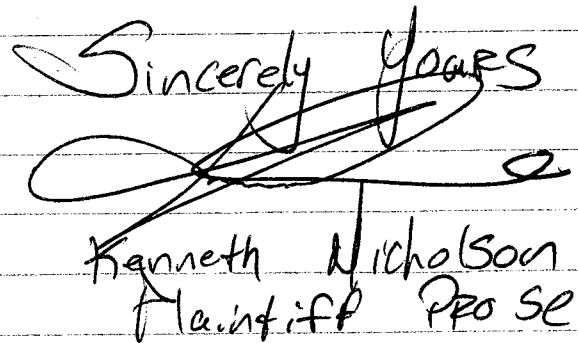 Sincerely Yours
Kenneth Nicholson
Plaintiff Pro Se